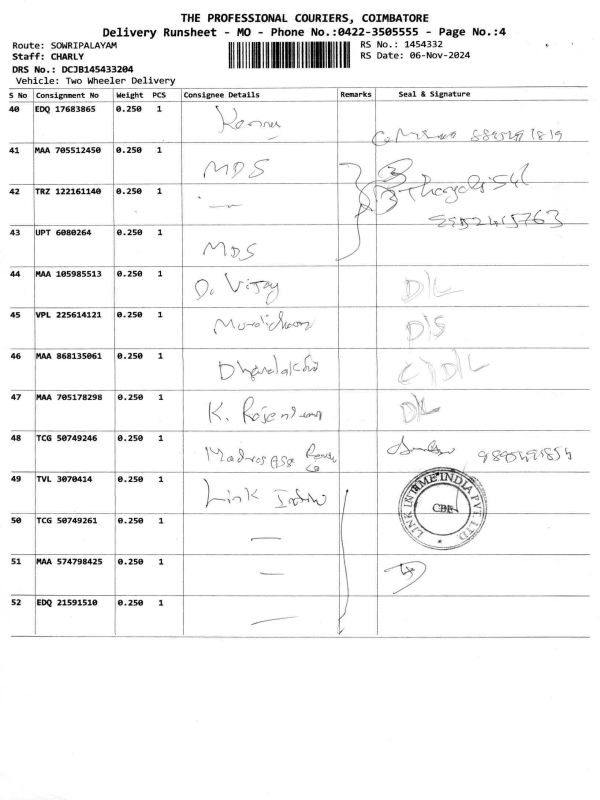 THE PROFESSIONAL COURIERS, COIMBATORE
Delivery Runsheet - MO - Phone No.:0422-3505555 - Page No.:4
Route: SOWRIPALAYAM RS No.: 1454332
Staff: CHARLY RS Date: 06-Nov-2024
DRS No.: DCJB145433204
Vehicle: Two Wheeler Delivery
S No Consignment No Weight PCS Consignee Details Remarks Seal & Signature
40 EDQ 17683865 0.250 1
41 MAA 705512450 0.250 1 MDS
42 TRZ 122161140 0.250 1 —
43 UPT 6080264 0.250 1 MDS
44 MAA 105985513 0.250 1 D. Vijay D/L
45 VPL 225614121 0.250 1 D/S
46 MAA 868135061 0.250 1 C/D/L
47 MAA 705178298 0.250 1 K. D/L
48 TCG 50749246 0.250 1 Madras
49 TVL 3070414 0.250 1 Link India
LINK INTIME INDIA PVT. LTD.
CBE
50 TCG 50749261 0.250 1 —
51 MAA 574798425 0.250 1 —
52 EDQ 21591510 0.250 1 —